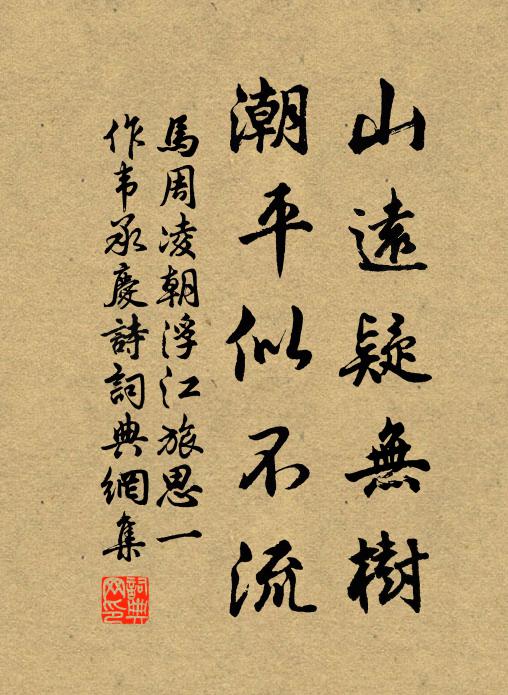 山遠疑無樹
潮平似不流
馬周凌朝浮江旅思一
作韦承慶詩詞典網集
詞典网印